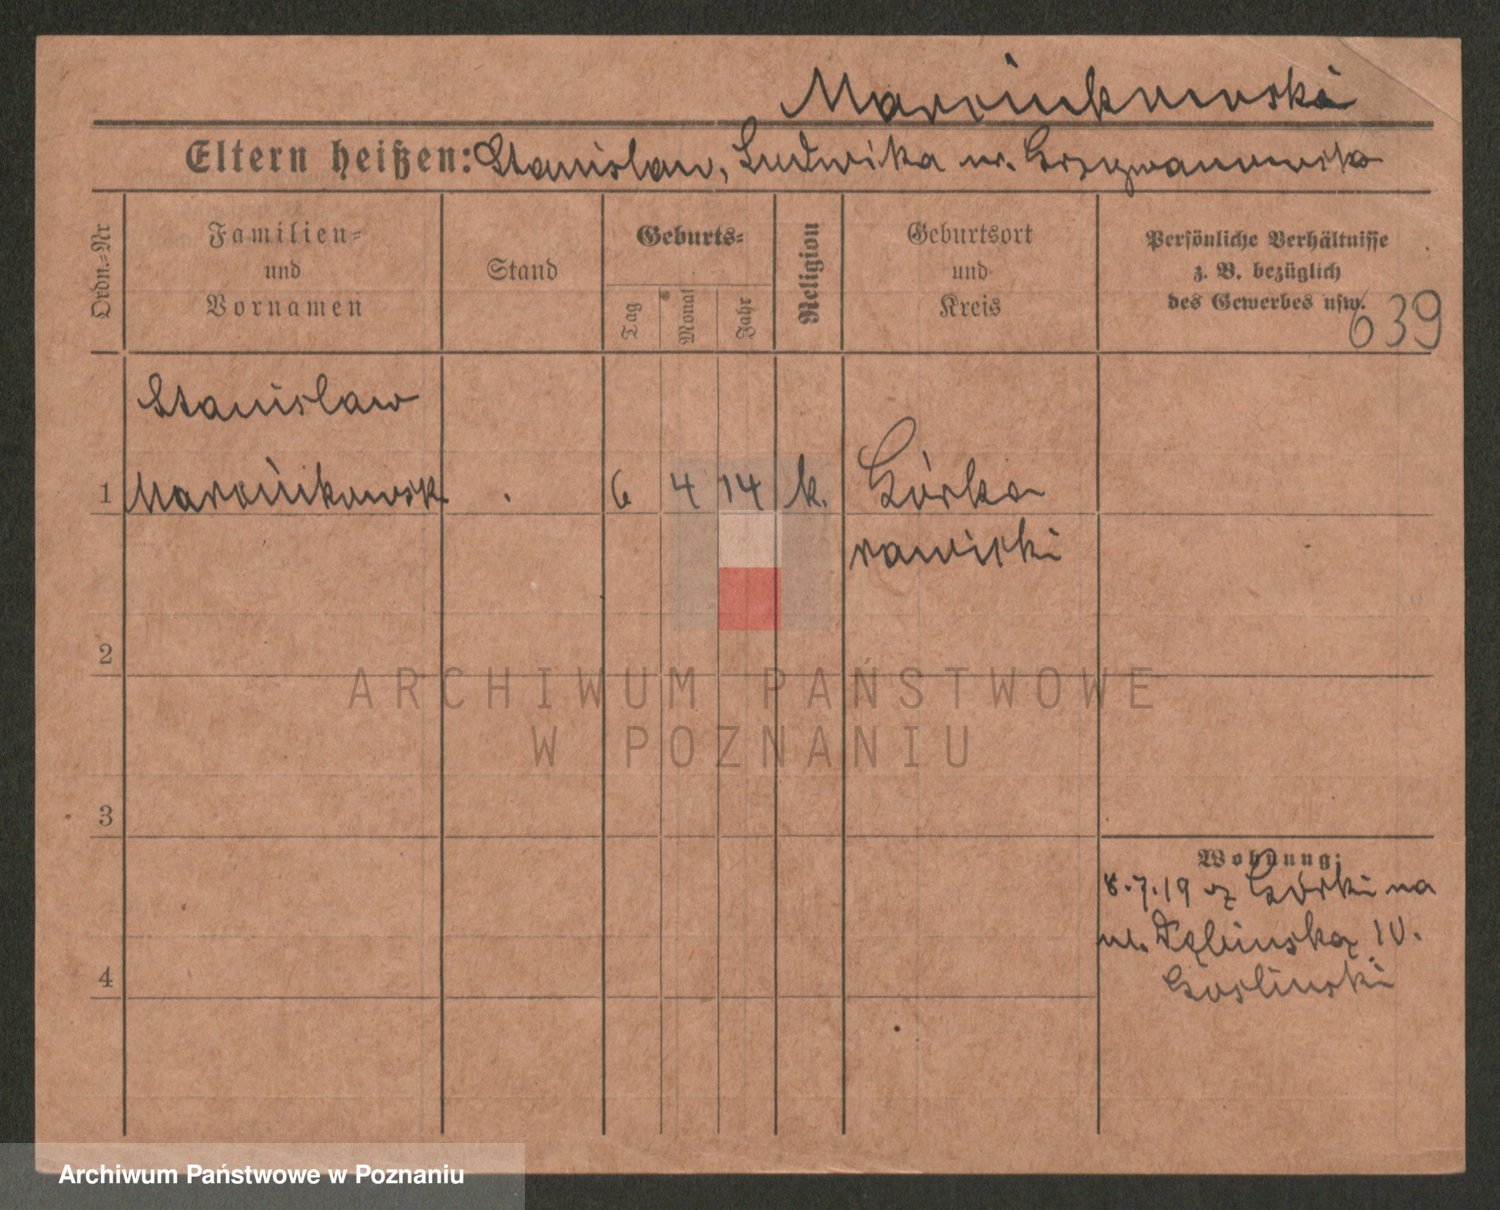 Marcinkowski
Eltern heißen: Stanislaw, Ludwika ur.
Ordn.-Nr
Familien-
und
Vornamen
Stand
Geburts-
Tag
Monat
Jahr
Religion
Geburtsort
und
Kreis
Persönliche Verhältnisse
z. B. bezüglich
des Gewerbes usw.
639
Stanislaw
1 Marcinkowski . 6 4 14 k. Górka
rawicki
2
ARCHIWUM PAŃSTWOWE
W POZNANIU
3
Wohnung:
8.7.19 z Górki na
ul. Dębinską IV.
Gosliński
4
Archiwum Państwowe w Poznaniu